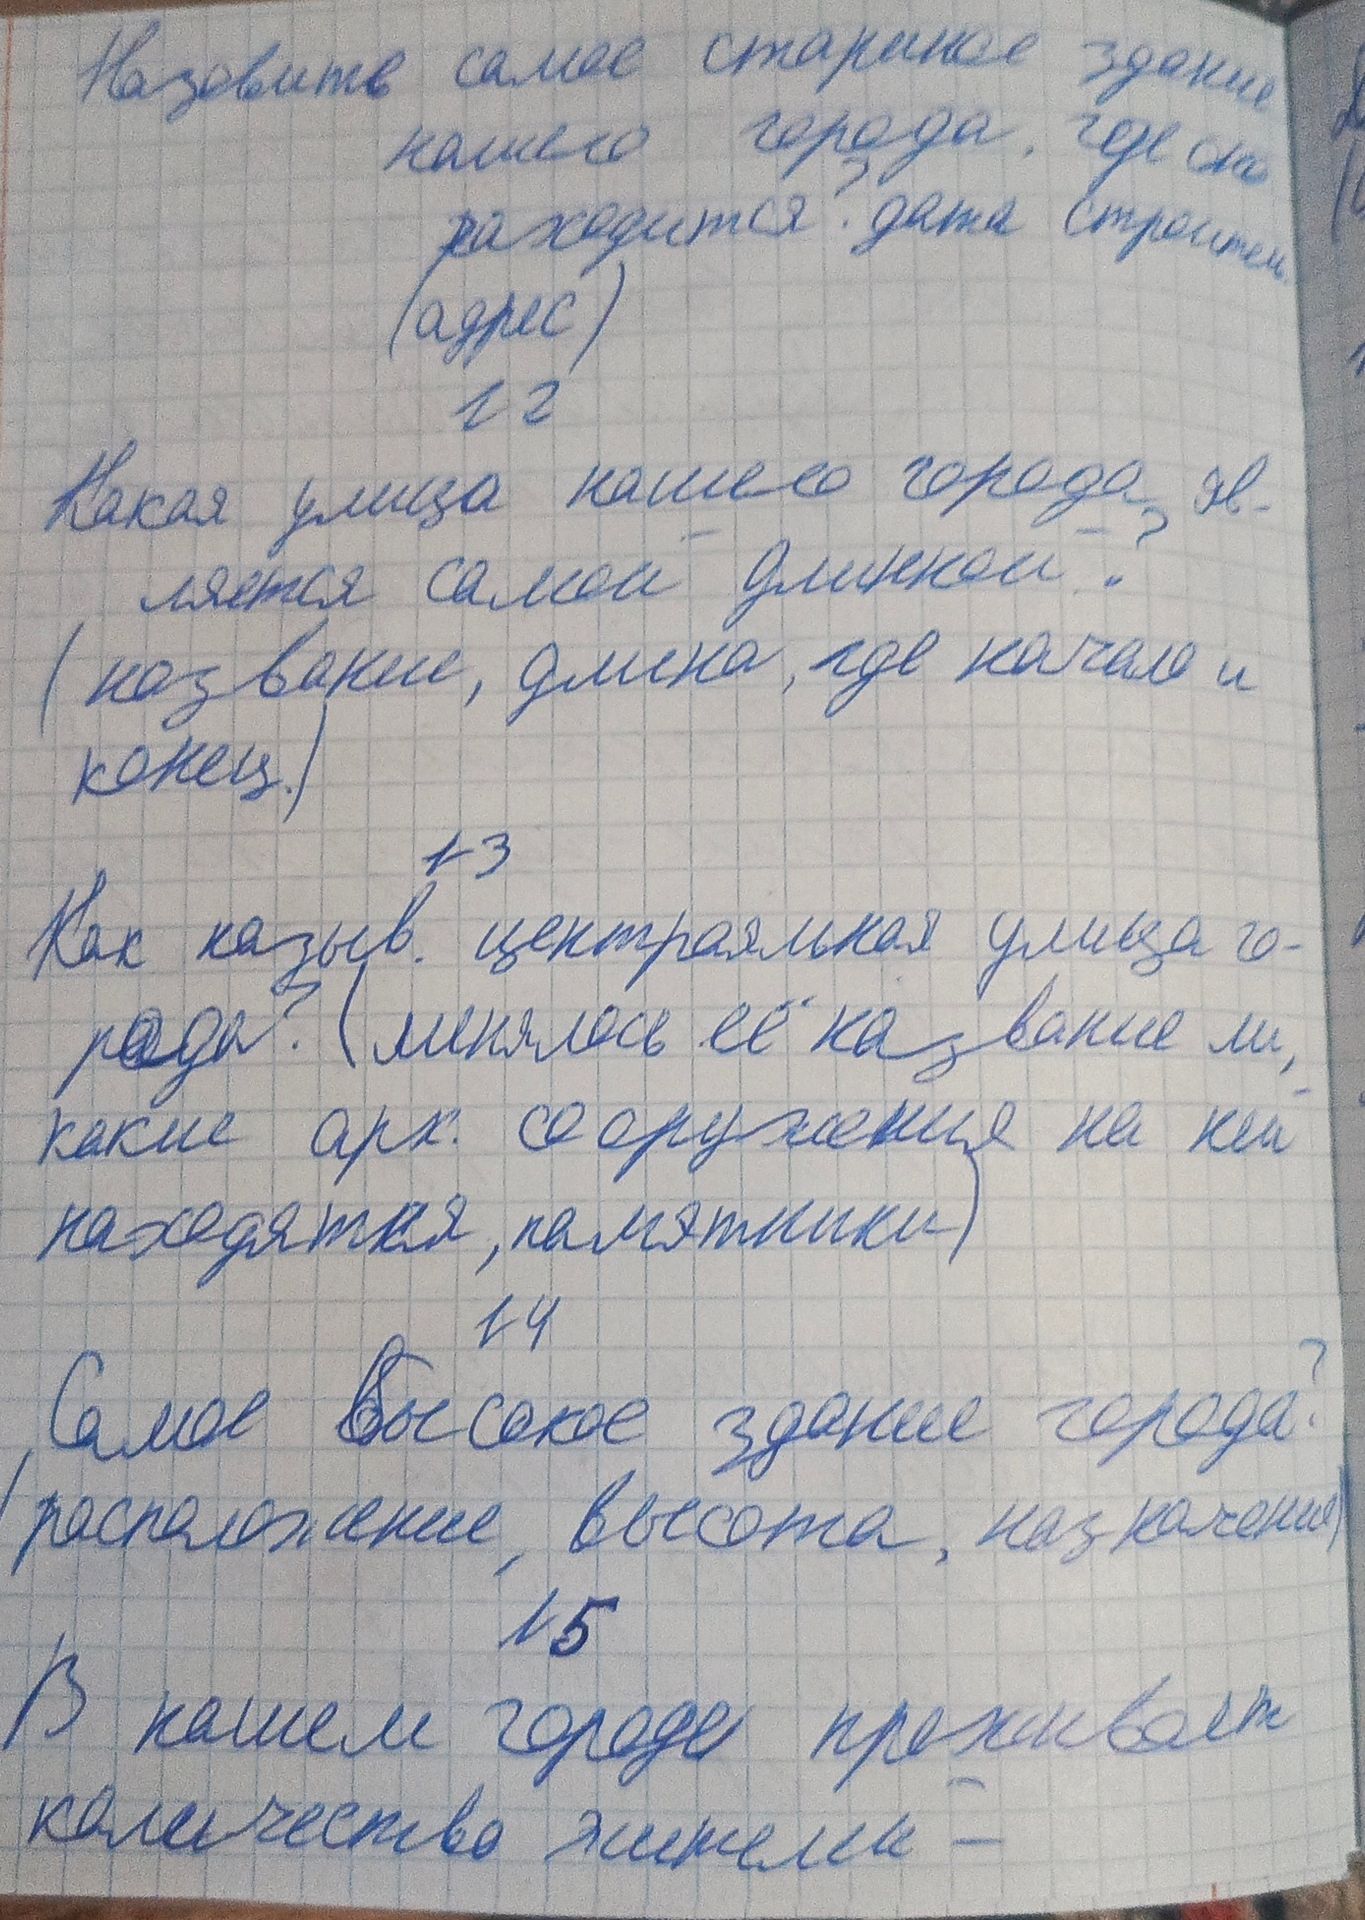 Назовите самое стариное здание
нашего города, где оно
находится? дата строител.
(адрес)
12
Какая улица нашего города яв-
ляется самой длинной?
(название, длина, где начало и
конец.)
13
Как назыв. центральная улица го-
рода? (менялось её название ли,
какие арх. сооружения на ней
находятся, памятники)
14
Самое высокое здание города?
(расположение, высота, назначение)
15
В нашем городе проживает
количество жителей -